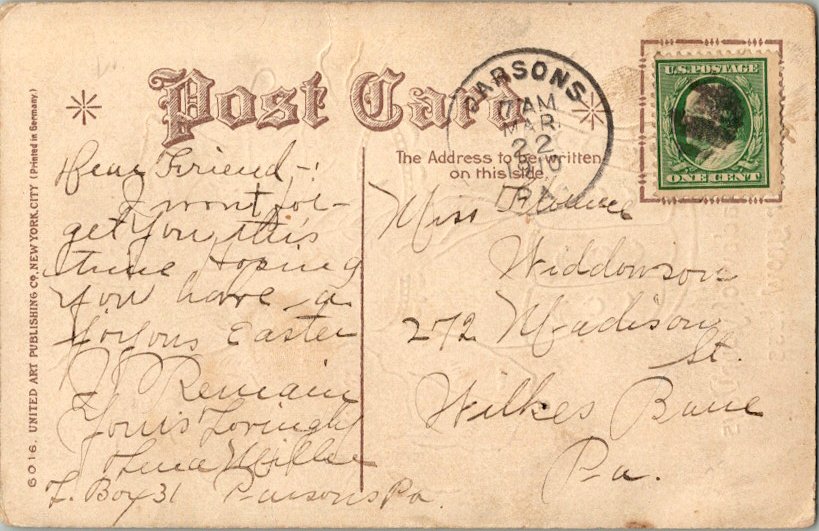 Post Card
The Address to be written
on this side.
PARSONS
7 AM
MAR.
22
PA.
U.S. POSTAGE
ONE CENT
6016. UNITED ART PUBLISHING CO., NEW YORK, CITY (Printed in Germany.)
Dear Friend-:
I wont for-
get you this
time hoping
you have a
Joyous Easter
I Remain
Yours Lovingly
Lena Miller
L. Box 31 Parsons Pa.
Miss Florence
Widdowson
272 Madison
St.
Wilkes Barre
Pa.